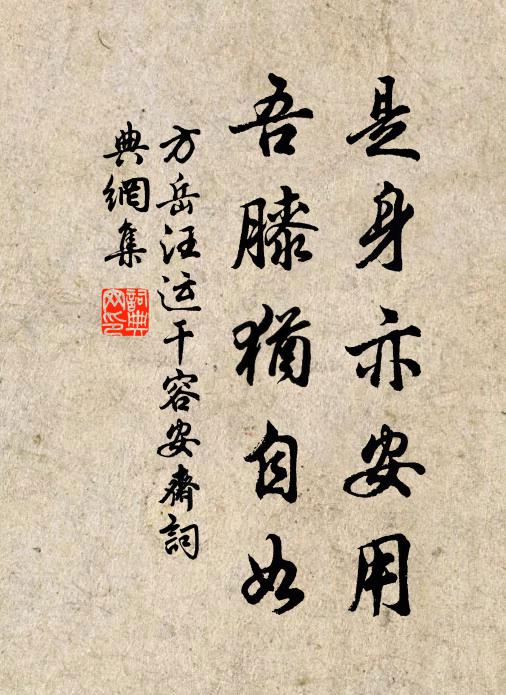 是身亦安用
吾膝犹自如
方岳汪运干容安齋詞
典網集
詞典
网印